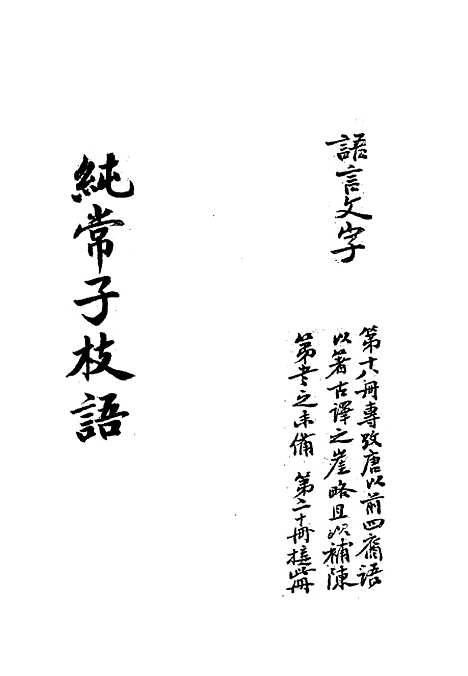 語言文字
第十八冊專攷唐以前四裔語
以著古譯之崖略且以補陳
第書之未備 第二十冊接此冊
純常子枝語